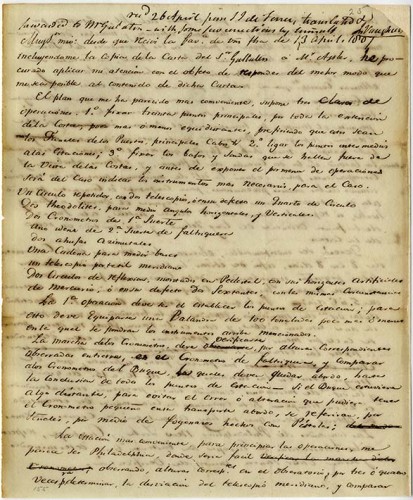 rec'd 26 April from J.J. de Ferrer, translated &
forwarded to Mr Gallatin - with some few corrections by himself
Muy Sr mio: desde que recivi la fav. de vm fha de 13 April 1807
incluyendome la Copia de la Carta del Sr Gallatin á Mr he pro-
curado aplicar mi atencion con el objeto de responder del mejor modo que
me sea posible al contenido de dicha Carta.
El plan que me ha parecido mas conveniente, supone tres clases de
operaciones. 1º fixar treinta puntos principales, por toda la extension
de la costa, poco mas o menos equidistantes, prefiriendo que estos sean
los de la Puertos, principales Cabos &. 2º ligar los puntos intermedios
a las estaciones. 3º fixar los baxos y Sondas que se hallen fuera de
la Vista de las Costas, y antes de exponer el pormenor de operaciones
será del Caso indicar los instrumentos mas necesarios para el Caso.
Un Circulo repetidor, con dos telescopios, ó en su defecto un Quarto de Circulo
Dos theodolites, para medir angulos horizontales y Verticales
dos Cronometros de 1ª Suerte
uno idem de 2ª Suerte de faltriquera
dos abujas azimutales
Una Cadena para medir bases
un telescopio para el meridiano
Dos Circulos de reflexion, montados en Pedestal, con sus horizontes artificiales
de Mercurio, ó en su defecto dos Sextantes, con las mismas Circunstancias
La 1ª operacion debe ser el establecer los puntos de estacion; para
esto debe equiparse una Palandra de 100 toneladas poco mas o menos
en la qual se pondran los instrumentos arriba mencionados.
La marcha de los Cronometros, debe verificarse por alturas Correspondientes
observadas en tierra, en el Cronometro de faltriquera, y comparados
a los Cronometros del Buque, los quales deven quedar abordo hasta
la Conclusion de todos los puntos de estacion. Si el Buque estuviera
algo distante, para evitar el error ó alteracion que pudiera tener
el Cronometro pequeño en su transporte abordo, se referirán por
señales, por medio de fogonazos hechos con Pistolas;
La estacion mas conveniente para principiar las operaciones, me
parece ser Philadelphia, donde será facil
observando, alturas corresp.es en el observatorio, por tres ó quatro
Veces, determinar, la desviacion del telescopio meridiano, y comparar
155